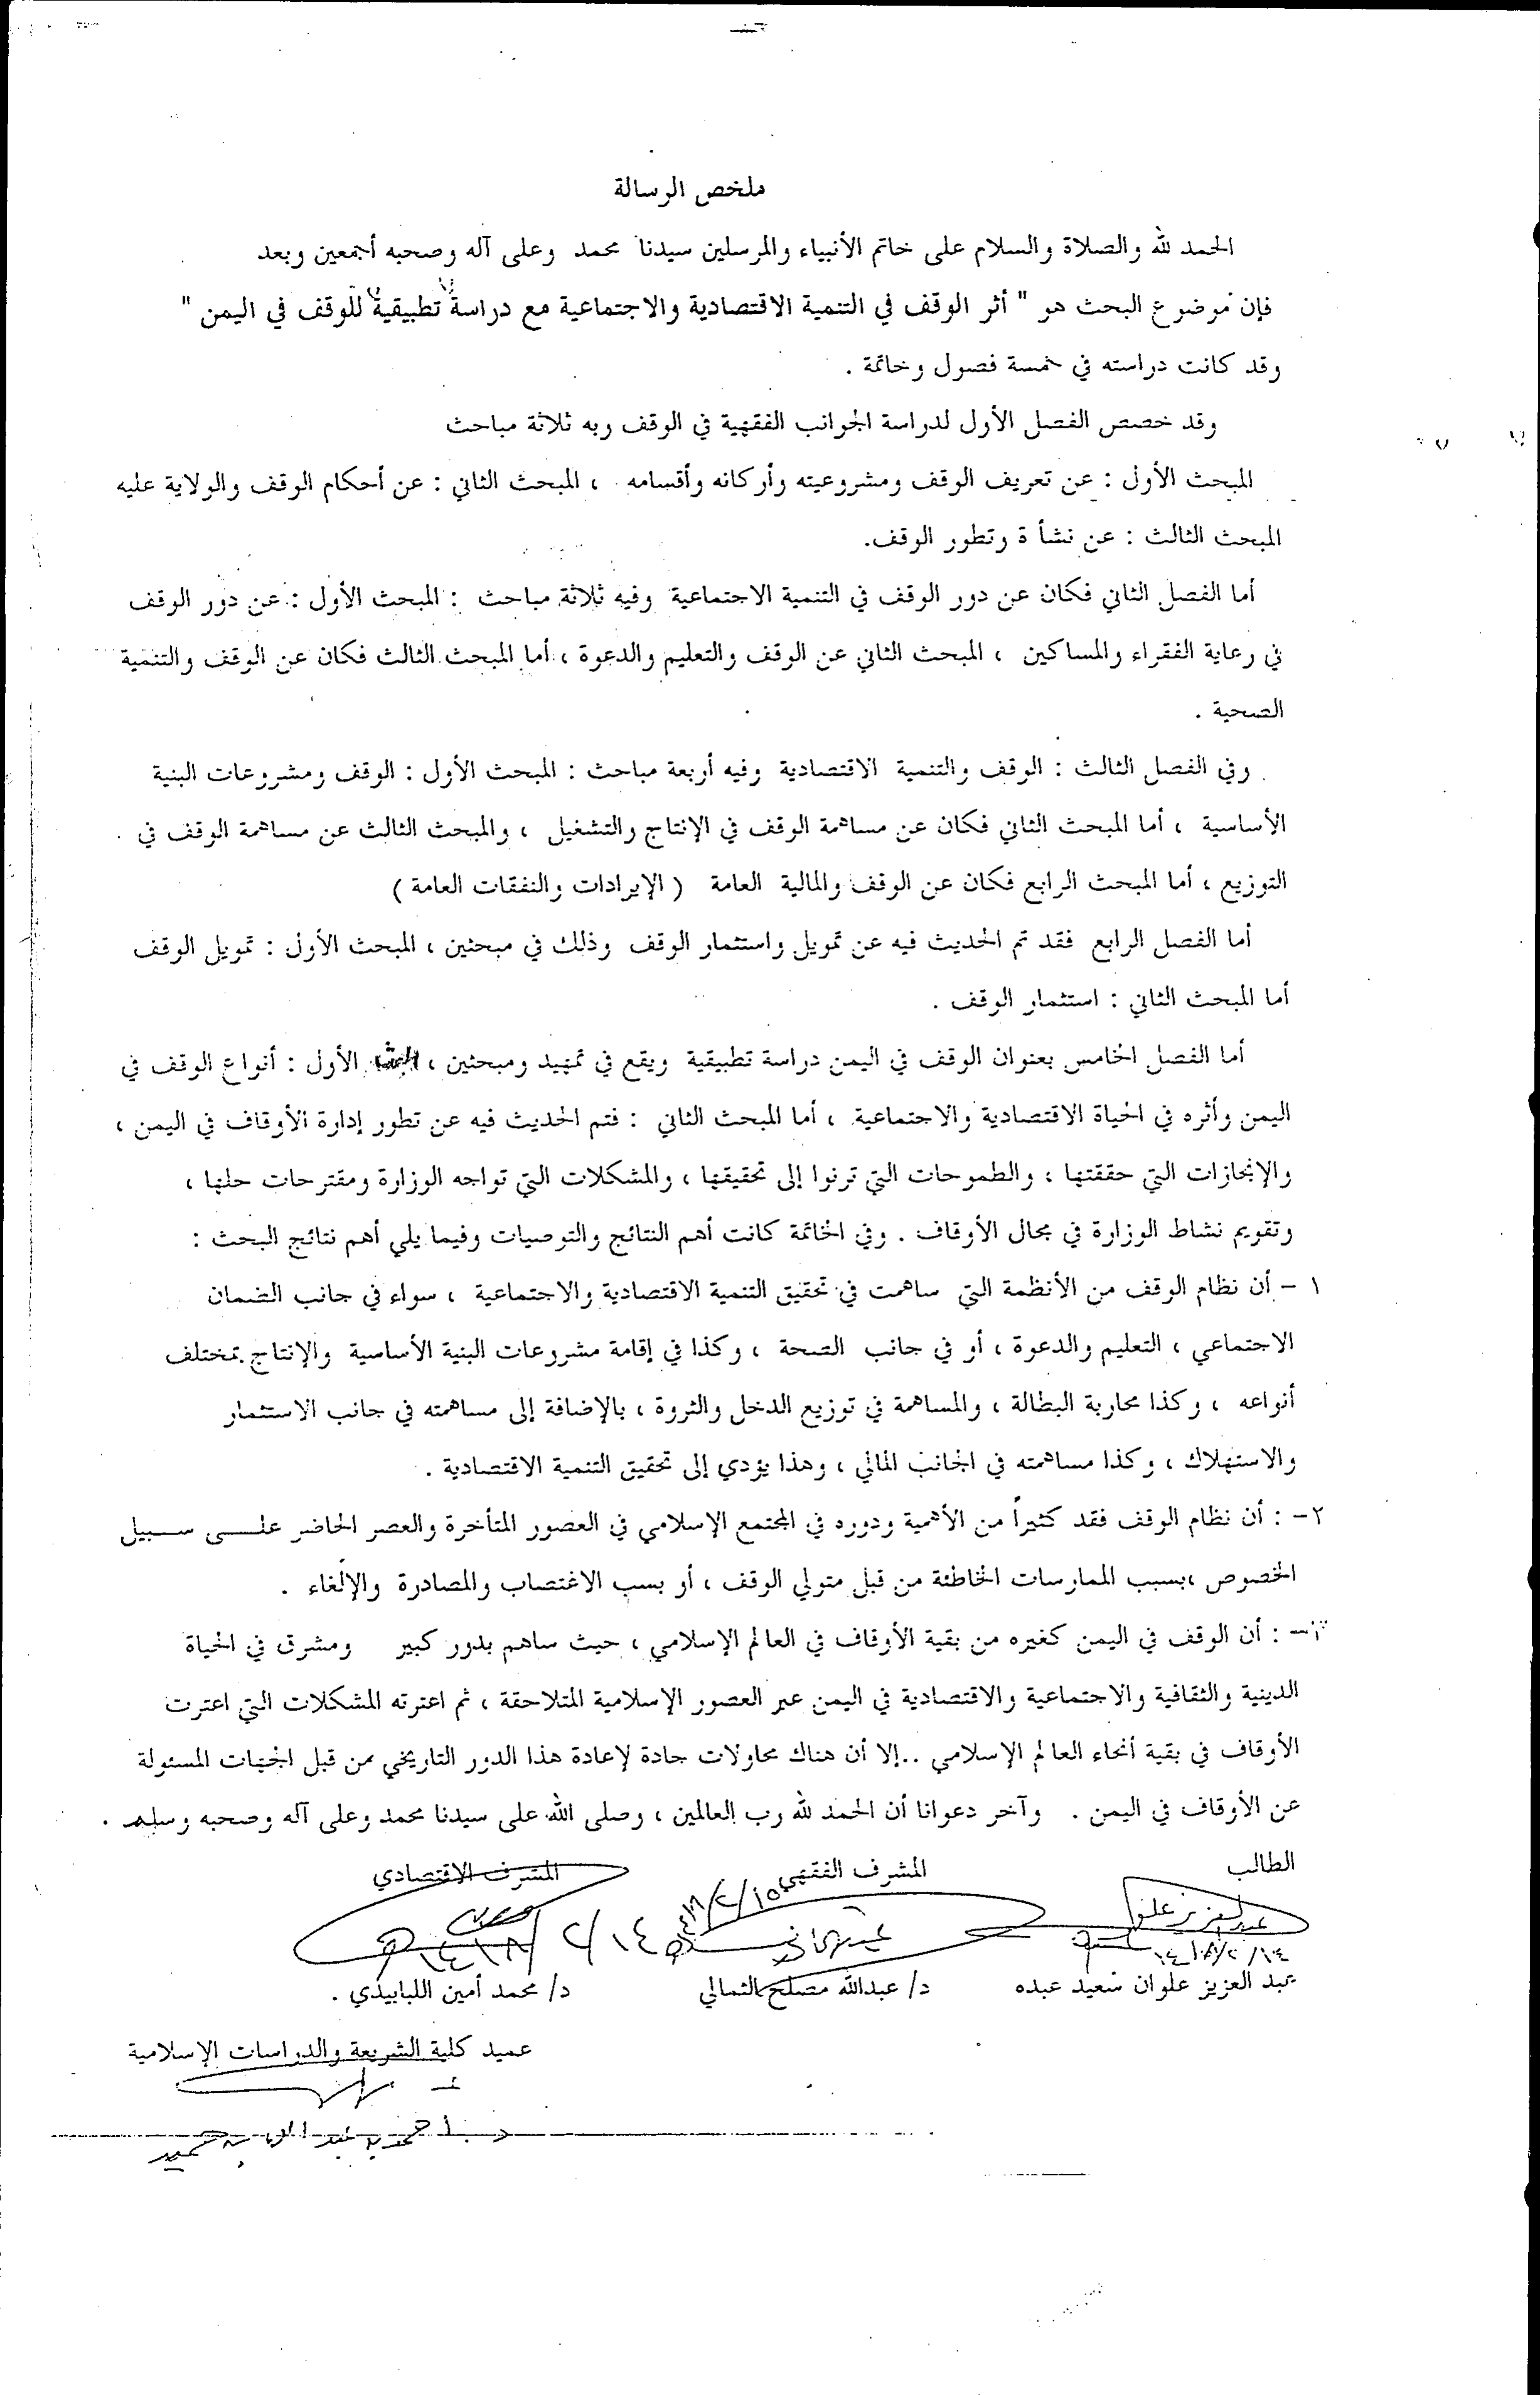 ملخص الرسالة
الحمد لله والصلاة والسلام على خاتم الأنبياء والمرسلين سيدنا محمد وعلى آله وصحبه أجمعين وبعد
فإن موضوع البحث هو " أثر الوقف في التنمية الاقتصادية والاجتماعية مع دراسة تطبيقية للوقف في اليمن "
وقد كانت دراسته في خمسة فصول وخاتمة .
وقد خصص الفصل الأول لدراسة الجوانب الفقهية في الوقف وبه ثلاثة مباحث
المبحث الأول : عن تعريف الوقف ومشروعيته وأركانه وأقسامه ، المبحث الثاني : عن أحكام الوقف والولاية عليه
المبحث الثالث : عن نشأ ة وتطور الوقف.
أما الفصل الثاني فكان عن دور الوقف في التنمية الاجتماعية وفيه ثلاثة مباحث : المبحث الأول : عن دور الوقف
في رعاية الفقراء والمساكين ، المبحث الثاني عن الوقف والتعليم والدعوة ، أما المبحث الثالث فكان عن الوقف والتنمية
الصحية .
وفي الفصل الثالث : الوقف والتنمية الاقتصادية وفيه أربعة مباحث : المبحث الأول : الوقف ومشروعات البنية
الأساسية ، أما المبحث الثاني فكان عن مساهمة الوقف في الإنتاج والتشغيل ، والمبحث الثالث عن مساهمة الوقف في
التوزيع ، أما المبحث الرابع فكان عن الوقف والمالية العامة ( الإيرادات والنفقات العامة )
أما الفصل الرابع فقد تم الحديث فيه عن تمويل واستثمار الوقف وذلك في مبحثين ، المبحث الأول : تمويل الوقف
أما المبحث الثاني : استثمار الوقف .
أما الفصل الخامس بعنوان الوقف في اليمن دراسة تطبيقية ويقع في تمهيد ومبحثين ، الأول : أنواع الوقف في
اليمن وأثره في الحياة الاقتصادية والاجتماعية ، أما المبحث الثاني : فتم الحديث فيه عن تطور إدارة الأوقاف في اليمن ،
والإنجازات التي حققتها ، والطموحات التي ترنوا إلى تحقيقها ، والمشكلات التي تواجه الوزارة ومقترحات حلها ،
وتقويم نشاط الوزارة في مجال الأوقاف . وفي الخاتمة كانت أهم النتائج والتوصيات وفيما يلي أهم نتائج البحث :
١ – أن نظام الوقف من الأنظمة التي ساهمت في تحقيق التنمية الاقتصادية والاجتماعية ، سواء في جانب الضمان
الاجتماعي ، التعليم والدعوة ، أو في جانب الصحة ، وكذا في إقامة مشروعات البنية الأساسية والإنتاج بمختلف
أنواعه ، وكذا محاربة البطالة ، والمساهمة في توزيع الدخل والثروة ، بالإضافة إلى مساهمته في جانب الاستثمار
والاستهلاك ، وكذا مساهمته في الجانب المالي ، وهذا يؤدي إلى تحقيق التنمية الاقتصادية .
٢– : أن نظام الوقف فقد كثيراً من الأهمية ودوره في المجتمع الإسلامي في العصور المتأخرة والعصر الحاضر على سبيل
الخصوص ،بسبب الممارسات الخاطئة من قبل متولي الوقف ، أو بسب الاغتصاب والمصادرة والإلغاء .
٣– : أن الوقف في اليمن كغيره من بقية الأوقاف في العالم الإسلامي ، حيث ساهم بدور كبير ومشرق في الحياة
الدينية والثقافية والاجتماعية والاقتصادية في اليمن عبر العصور الإسلامية المتلاحقة ، ثم اعترته المشكلات التي اعترت
الأوقاف في بقية أنحاء العالم الإسلامي ..إلا أن هناك محاولات جادة لإعادة هذا الدور التاريخي من قبل الجهات المسئولة
عن الأوقاف في اليمن . وآخر دعوانا أن الحمد لله رب العالمين ، وصلى الله على سيدنا محمد وعلى آله وصحبه وسلم .
الطالب المشرف الفقهي المشرف الاقتصادي
عبدالعزيز علوان
١٤١٨/٢/١٤ ١٤١٨/٢/١٥ ١٤١٨/٢/١٤
عبد العزيز علوان سعيد عبده د/ عبدالله مصلح الثمالي د/ محمد أمين اللبابيدي .
عميد كلية الشريعة والدراسات الإسلامية